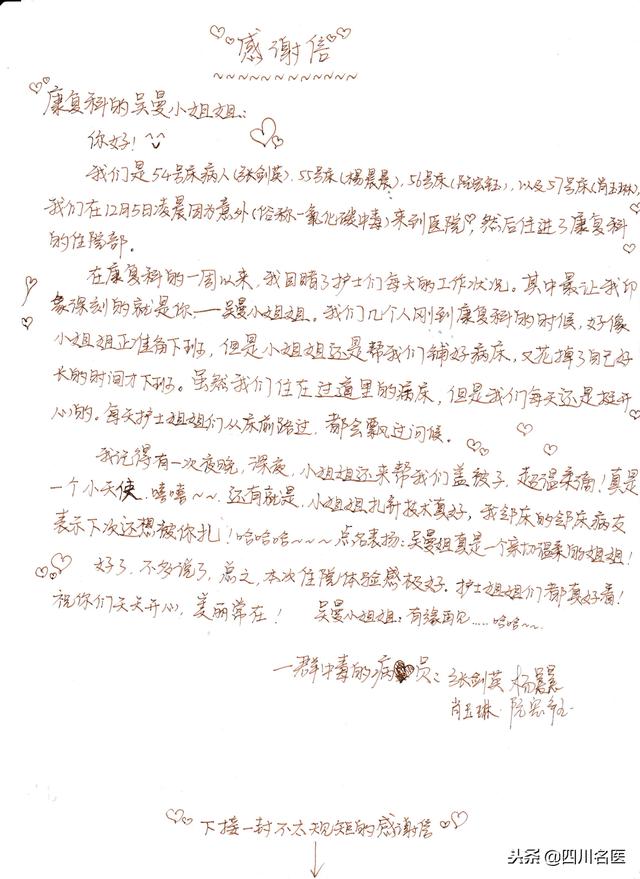 感谢信
康复科的吴曼小姐姐：
你好！^^
我们是54号床病人(张剑英)，55号床(杨晨晨)，56号床(阮宏钰)，以及57号床(肖玉琳)，
我们在12月5日凌晨因为意外(俗称一氧化碳中毒)来到医院，然后住进了康复科
的住院部。
在康复科的一周以来，我目睹了护士们每天的工作状况。其中最让我印
象深刻的就是你——吴曼小姐姐。我们几个人刚到康复科的时候，好像
小姐姐正准备下班，但是小姐姐还是帮我们铺好病床，又花掉了自己好
长的时间才下班。虽然我们住在过道里的病床，但是我们每天还是挺开
心的。每天护士姐姐们从床前路过，都会飘过问候。
我记得有一次夜晚，深夜，小姐姐还来帮我们盖被子，超温柔滴！真是
一个小天使，嘻嘻~~，还有就是，小姐姐扎针技术真好，我邻床的邻床病友
表示下次还想被你扎！哈哈哈~~~~点名表扬：吴曼姐真是一个亲切温柔的姐姐！
好了，不多说了，总之，本次住院体验感极好。护士姐姐们都真好看！
祝你们天天开心，美丽常在！ 吴曼小姐姐：有缘再见……哈哈~~
一群中毒的病员：张剑英 杨晨晨
肖玉琳 阮宏钰
下接一封不太规矩的感谢信
头条@四川名医